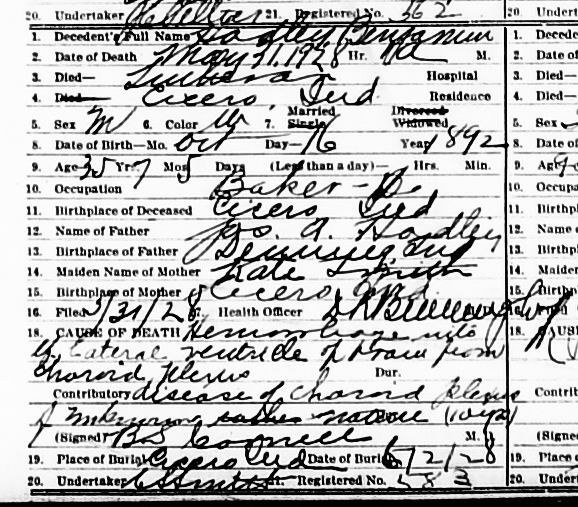 20. Undertaker 21. Registered No. 362 20. Undertaker
1. Decedent's Full Name Hoadley Benjamin 1. Decede
2. Date of Death May 21, 1928 Hr. M. 2. Date of
3. Died— Lutheran Hospital 3. Died—
4. Died— Cicero, Ind Residence 4. Died—
5. Sex M 6. Color W 7. Married Single Divorced Widowed 5. Sex
8. Date of Birth—Mo. Oct Day—16 Year 1892 8. Date of
9. Age 35 Yrs. 7 Mos 5 Days (Less than a day)— Hrs. Min. 9. Age
10. Occupation Baker 10. Occupa
11. Birthplace of Deceased Cicero Ind 11. Birthpl
12. Name of Father A. Hoadley 12. Name o
13. Birthplace of Father 13. Birthpl
14. Maiden Name of Mother Kate Smith 14. Maiden
15. Birthplace of Mother Cicero Ind. 15. Birthpl
16. Filed 5/31/28 Health Officer 16.
18. CAUSE OF DEATH Hemorrhage into 18. CAUS
lateral ventricle of brain from
Choroid plexus Dur.
Contributory disease of choroid plexus Contrib
of unknown nature (10 yrs)
(Signed) M. D. (Signe
19. Place of Burial Cicero Ind Date of Burial 6/2/28 19. Place
20. Undertaker 21. Registered No. 583 20. Undert